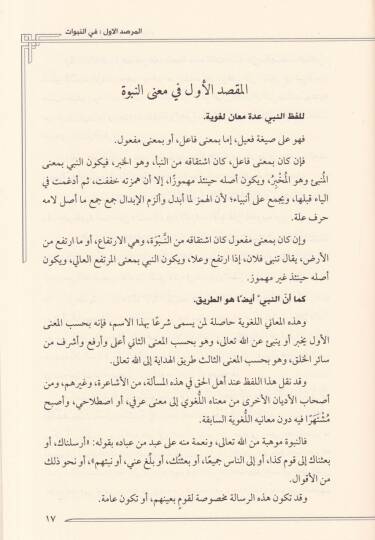 المرصد الأول: في النبوات
المقصد الأول في معنى النبوة
للفظ النبي عدة معان لغوية.
فهو على صيغة فعيل، إما بمعنى فاعل، أو بمعنى مفعول.
فإن كان بمعنى فاعل، كان اشتقاقه من النبأ، وهو الخبر، فيكون النبي بمعنى
المُنبئ وهو المُخْبِرُ، ويكون أصله حينئذ مهموزًا، إلا أن همزته خففت، ثم أدغمت في
الياء قبلها، ويجمع على أنبياء؛ لأن الهمز لما أبدل وألزم الإبدال جمع جمع ما أصل لامه
حرف علة.
وإن كان بمعنى مفعول كان اشتقاقه من النَّبْوَة، وهي الارتفاع، أو ما ارتفع من
الأرض، يقال تنبى فلان، إذا ارتفع وعلا، ويكون النبي بمعنى المرتفع العالي، ويكون
أصله حينئذ غير مهموز.
كما أنَّ النبيَّ أيضًا هو الطريق.
وهذه المعاني اللغوية حاصلة لمن يسمى شرعًا بهذا الاسم، فإنه بحسب المعنى
الأول يخبر أو ينبئ عن الله تعالى، وهو بحسب المعنى الثاني أعلى وأرفع وأشرف من
سائر الخلق، وهو بحسب المعنى الثالث طريق الهداية إلى الله تعالى.
وقد نقل هذا اللفظ عند أهل الحق في هذه المسألة، من الأشاعرة، وغيرهم، ومن
أصحاب الأديان الأخرى من معناه اللُّغوي إلى معنى عرفي، أو اصطلاحي، وأصبح
مُشْتَهَرًا فيه دون معانيه اللُّغوية السابقة.
فالنبوة موهبة من الله تعالى، ونعمة منه على عبد من عباده بقوله: «أرسلناك، أو
بعثناك إلى قوم كذا، أو إلى الناس جميعًا، أو بعثتُك، أو بلِّغ عني، أو نبئهم»، أو نحو ذلك
من الأقوال.
وقد تكون هذه الرسالة مخصوصة لقومٍ بعينهم، أو تكون عامة.
١٧